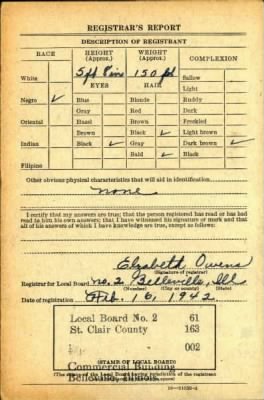 REGISTRAR'S REPORT
DESCRIPTION OF REGISTRANT
RACE HEIGHT (Approx.) WEIGHT (Approx.) COMPLEXION
White 5 ft nine 150 pd Sallow
EYES HAIR Light
Negro ✓ Blue Blonde Ruddy
Gray Red Dark
Oriental Hazel Brown Freckled
Brown Black ✓ Light brown
Indian Black ✓ Gray Dark brown ✓
Bald ✓ Black
Filipino
Other obvious physical characteristics that will aid in identification
none
I certify that my answers are true; that the person registered has read or has had
read to him his own answers; that I have witnessed his signature or mark and that
all of his answers of which I have knowledge are true, except as follows:
Elzabeth Owens
(Signature of registrar)
Registrar for Local Board no. 2 Belleville, Ill
(Number) (City or county) (State)
Date of registration Feb. 16, 1942
Local Board No. 2 61
St. Clair County 163
002
Commercial Building
Belleville, Illinois
(STAMP OF LOCAL BOARD)